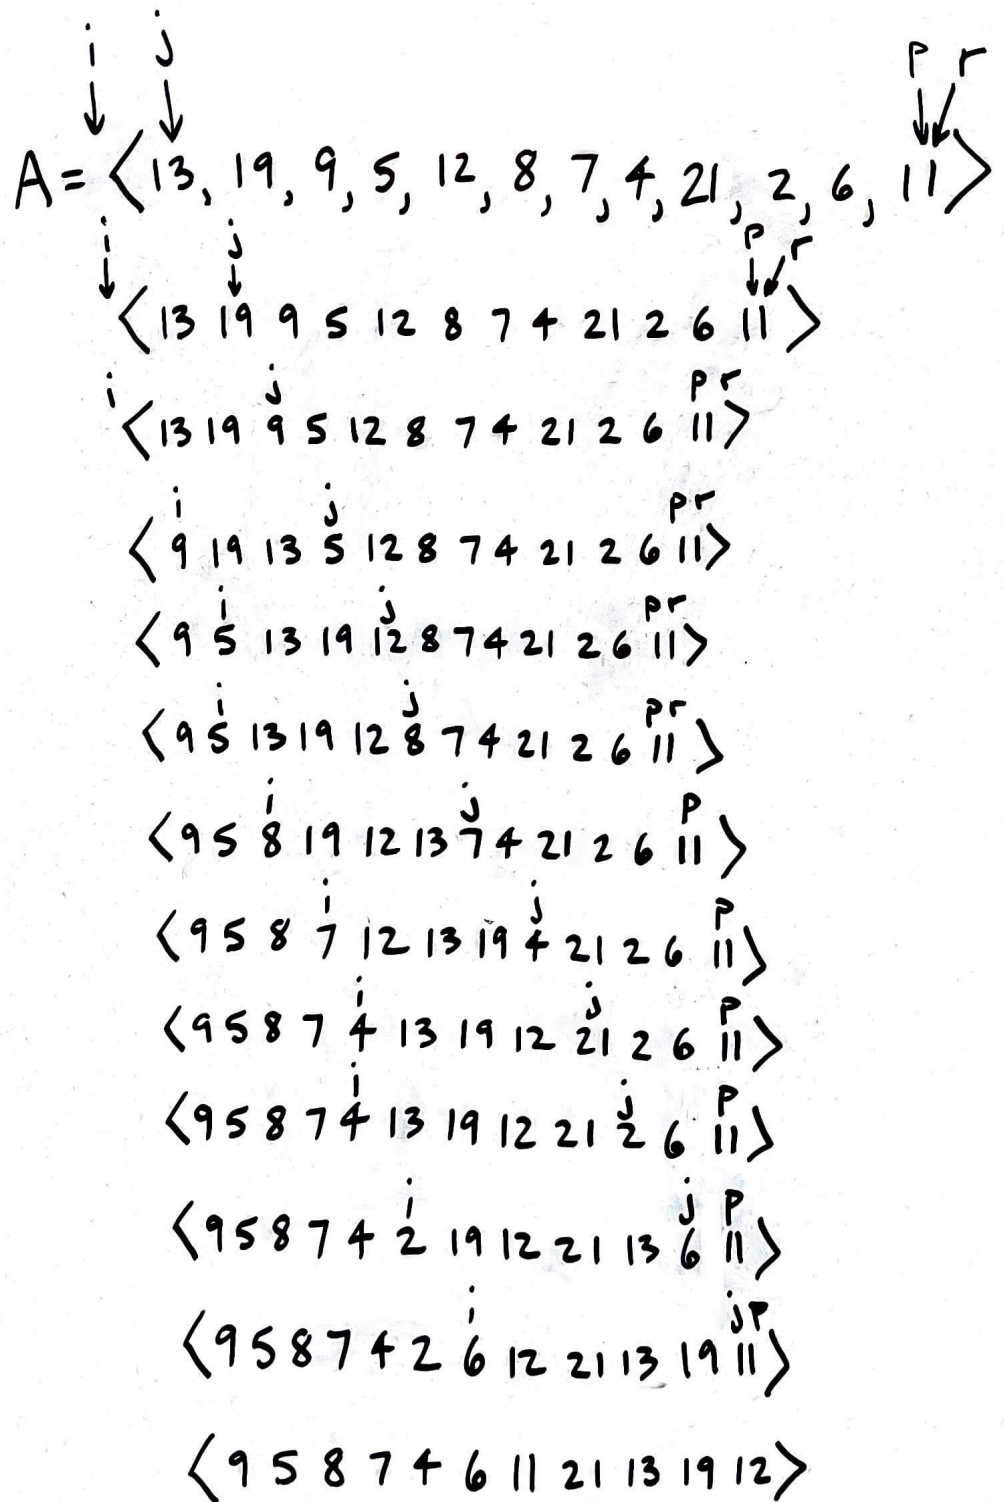 i j p r
A = ⟨13, 19, 9, 5, 12, 8, 7, 4, 21, 2, 6, 11⟩
i j p r
⟨13 19 9 5 12 8 7 4 21 2 6 11⟩
i j p r
⟨13 19 9 5 12 8 7 4 21 2 6 11⟩
i j p r
⟨9 19 13 5 12 8 7 4 21 2 6 11⟩
i j p r
⟨9 5 13 19 12 8 7 4 21 2 6 11⟩
i j p r
⟨9 5 13 19 12 8 7 4 21 2 6 11⟩
i j p
⟨9 5 8 19 12 13 7 4 21 2 6 11⟩
i j p
⟨9 5 8 7 12 13 19 4 21 2 6 11⟩
i j p
⟨9 5 8 7 4 13 19 12 21 2 6 11⟩
i j p
⟨9 5 8 7 4 13 19 12 21 2 6 11⟩
i j p
⟨9 5 8 7 4 2 19 12 21 13 6 11⟩
i j p
⟨9 5 8 7 4 2 6 12 21 13 19 11⟩
⟨9 5 8 7 4 6 11 21 13 19 12⟩